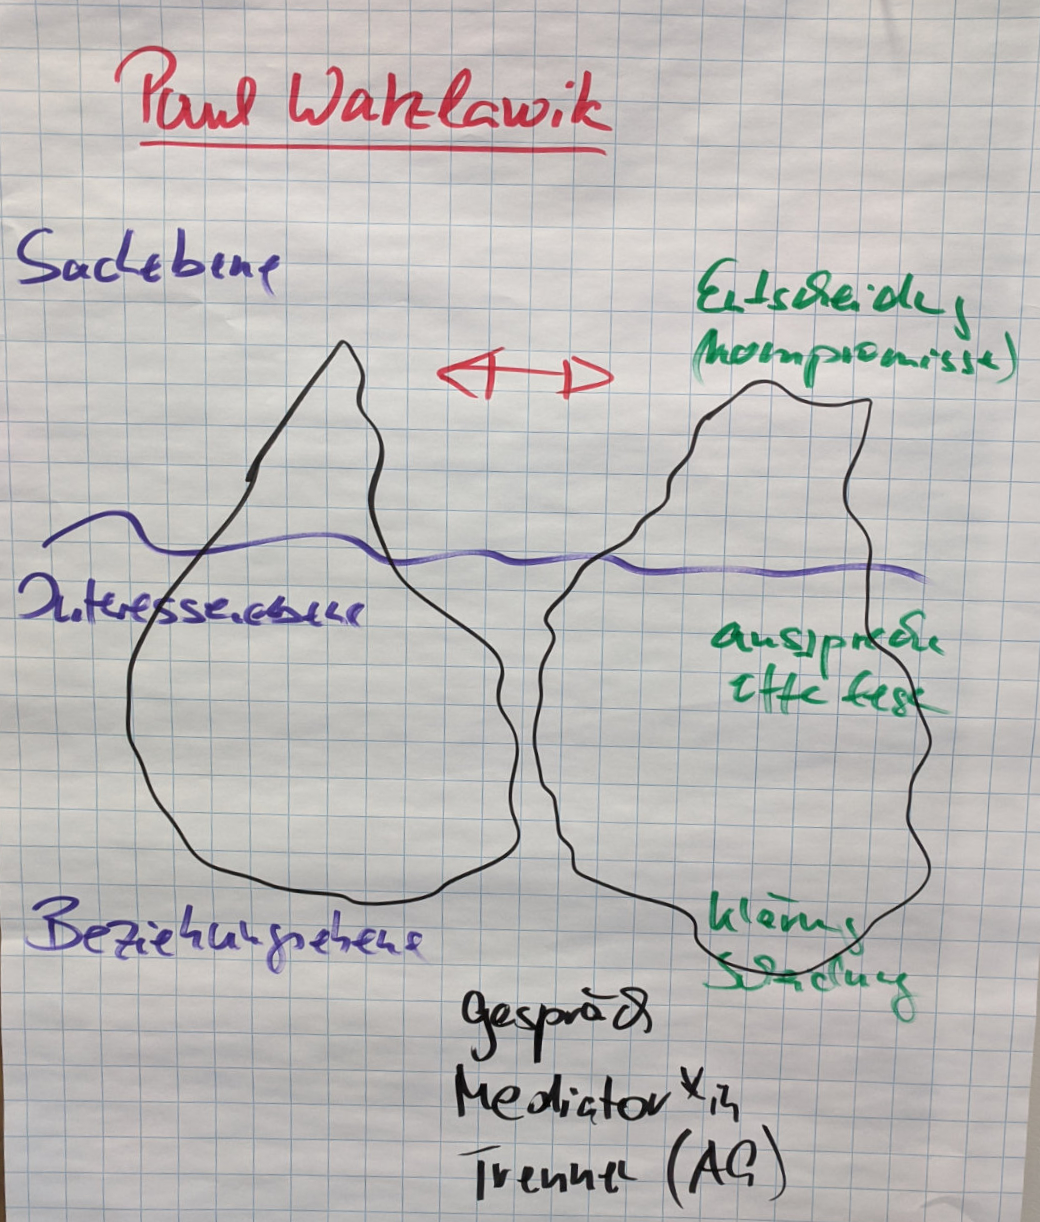 Paul Watzlawik
Sachebene
Entscheidung
(Kompromisse)
Interessenebene
aussprechen
Beziehungsebene
Klärung
Gespräch
Mediator*in
Trennen (AG)